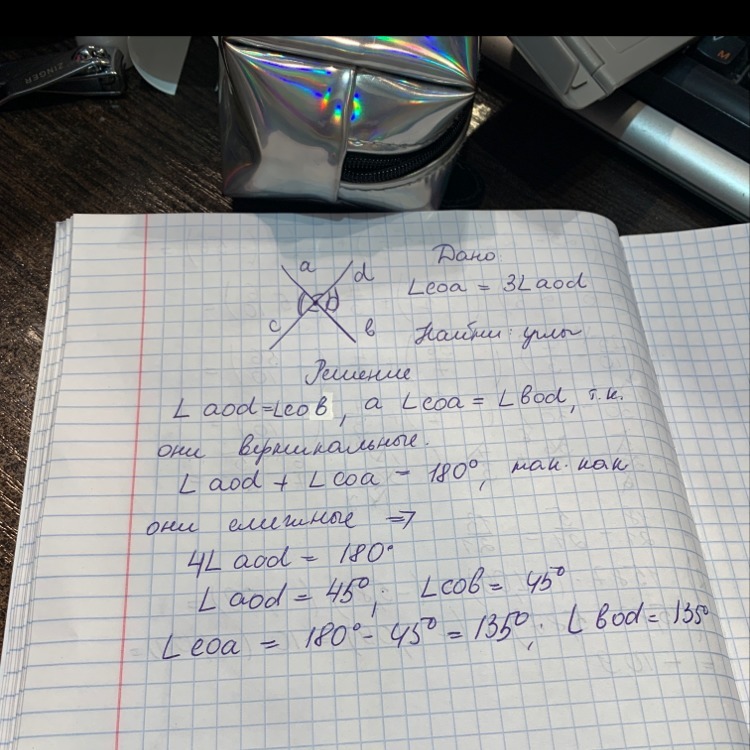 ZINGER
M
a
d
c
b
Дано
∠coa = 3∠aod
Найти: углы
Решение
∠ aod = ∠cob, а ∠coa = ∠bod, т.к.
они вертикальные.
∠ aod + ∠coa = 180°, так как
они смежные ⇒
4∠aod = 180°
∠ aod = 45°; ∠cob = 45°
∠coa = 180° - 45° = 135°; ∠bod = 135°